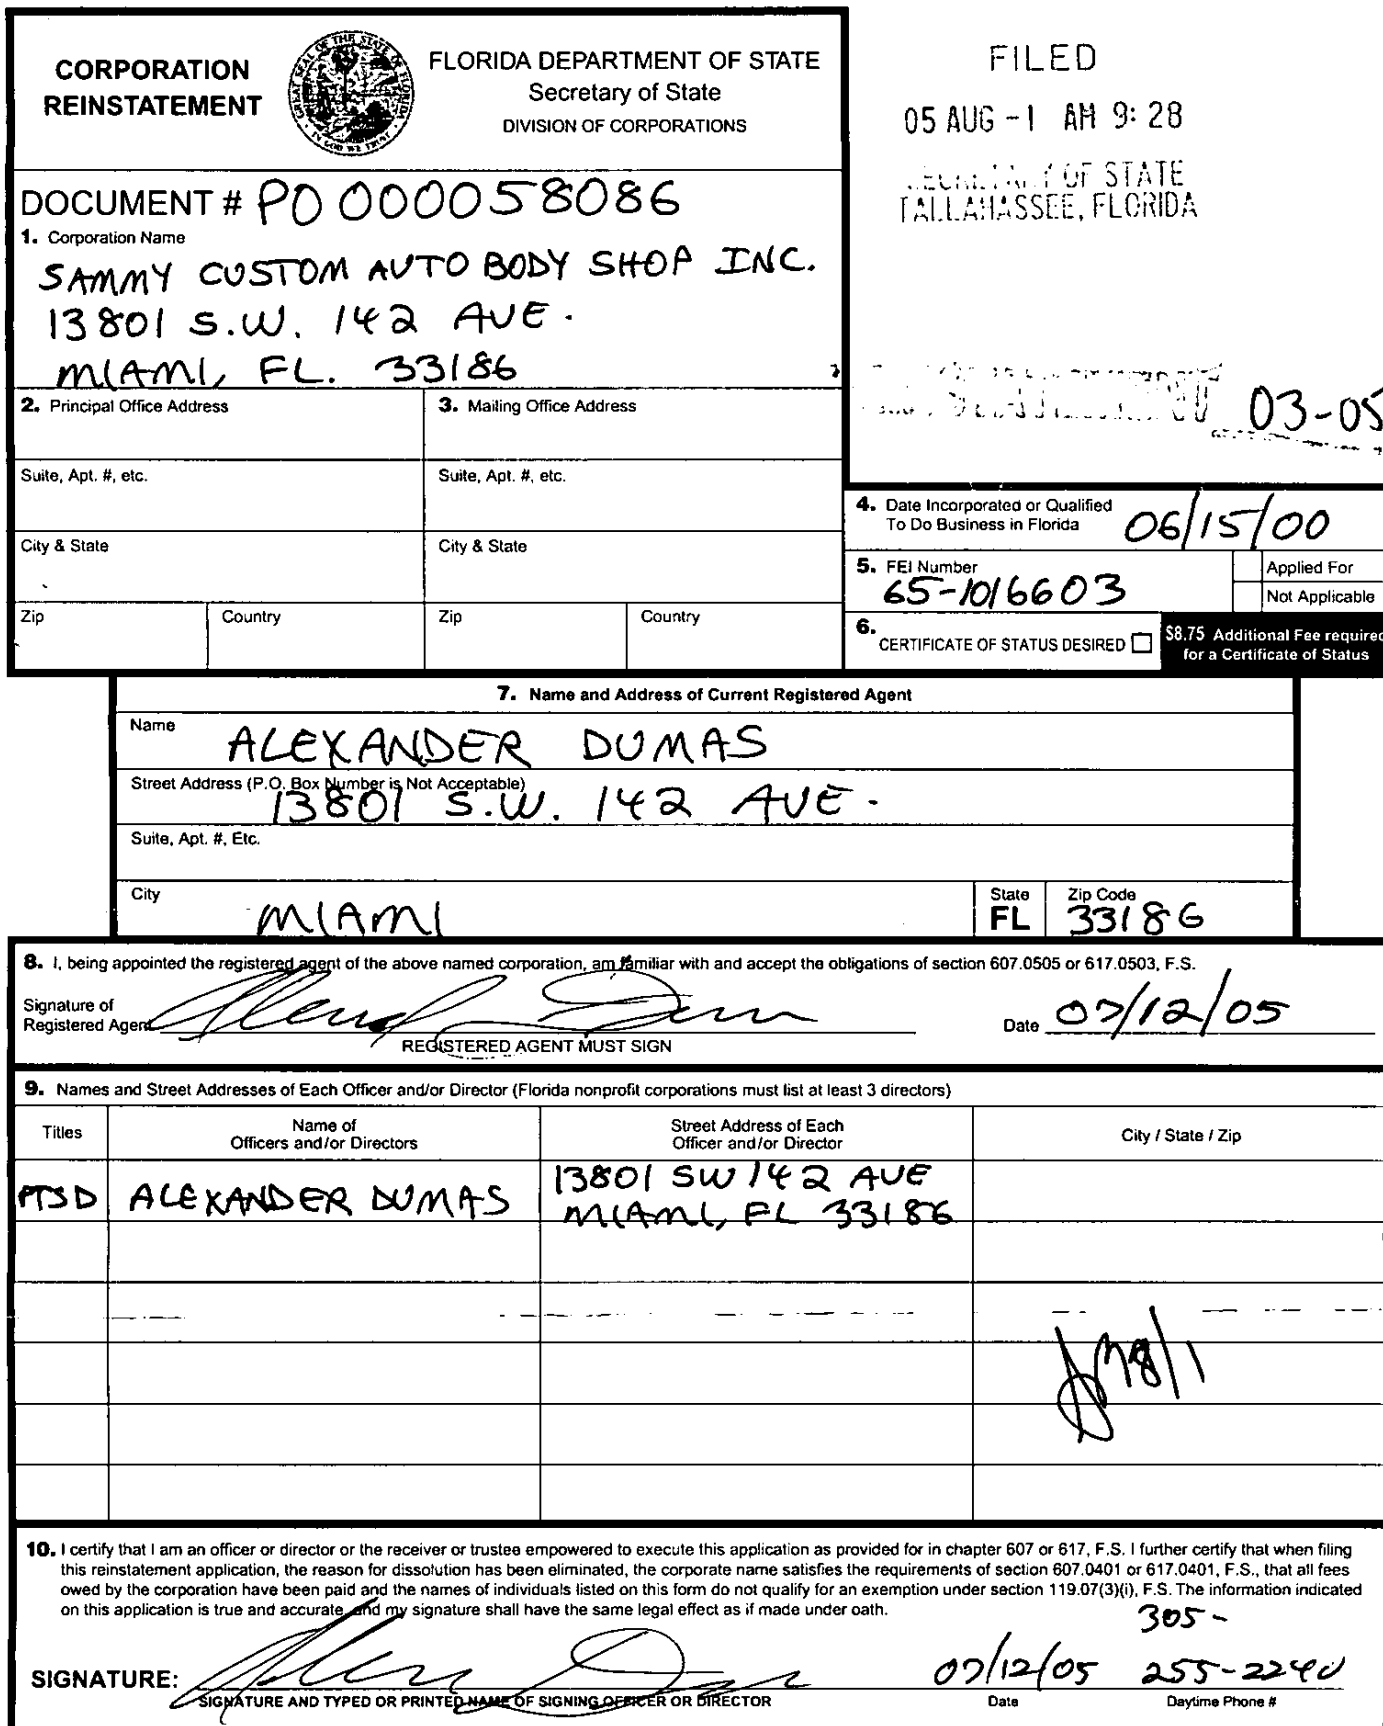 CORPORATION
REINSTATEMENT
FLORIDA DEPARTMENT OF STATE
Secretary of State
DIVISION OF CORPORATIONS
FILED
05 AUG -1 AM 9:28
OF STATE
TALLAHASSEE, FLORIDA
DOCUMENT # P00000058086
1. Corporation Name
SAMMY CUSTOM AUTO BODY SHOP INC.
13801 S.W. 142 AVE.
MIAMI, FL. 33186
03-05
2. Principal Office Address
3. Mailing Office Address
Suite, Apt. #, etc.
Suite, Apt. #, etc.
City & State
City & State
Zip
Country
Zip
Country
4. Date Incorporated or Qualified
To Do Business in Florida
06/15/00
5. FEI Number
65-1016603
Applied For
Not Applicable
6. CERTIFICATE OF STATUS DESIRED
$8.75 Additional Fee required
for a Certificate of Status
7. Name and Address of Current Registered Agent
Name
ALEXANDER DUMAS
Street Address (P.O. Box Number is Not Acceptable)
13801 S.W. 142 AVE.
Suite, Apt. #, Etc.
City
MIAMI
State
FL
Zip Code
33186
8. I, being appointed the registered agent of the above named corporation, am familiar with and accept the obligations of section 607.0505 or 617.0503, F.S.
Signature of
Registered Agent
REGISTERED AGENT MUST SIGN
Date 07/12/05
9. Names and Street Addresses of Each Officer and/or Director (Florida nonprofit corporations must list at least 3 directors)
Titles
Name of
Officers and/or Directors
Street Address of Each
Officer and/or Director
City / State / Zip
PTSD
ALEXANDER DUMAS
13801 SW 142 AVE
MIAMI, FL 33186
8/1
10. I certify that I am an officer or director or the receiver or trustee empowered to execute this application as provided for in chapter 607 or 617, F.S. I further certify that when filing
this reinstatement application, the reason for dissolution has been eliminated, the corporate name satisfies the requirements of section 607.0401 or 617.0401, F.S., that all fees
owed by the corporation have been paid and the names of individuals listed on this form do not qualify for an exemption under section 119.07(3)(i), F.S. The information indicated
on this application is true and accurate, and my signature shall have the same legal effect as if made under oath.
305-
SIGNATURE:
07/12/05
255-2240
SIGNATURE AND TYPED OR PRINTED NAME OF SIGNING OFFICER OR DIRECTOR
Date
Daytime Phone #